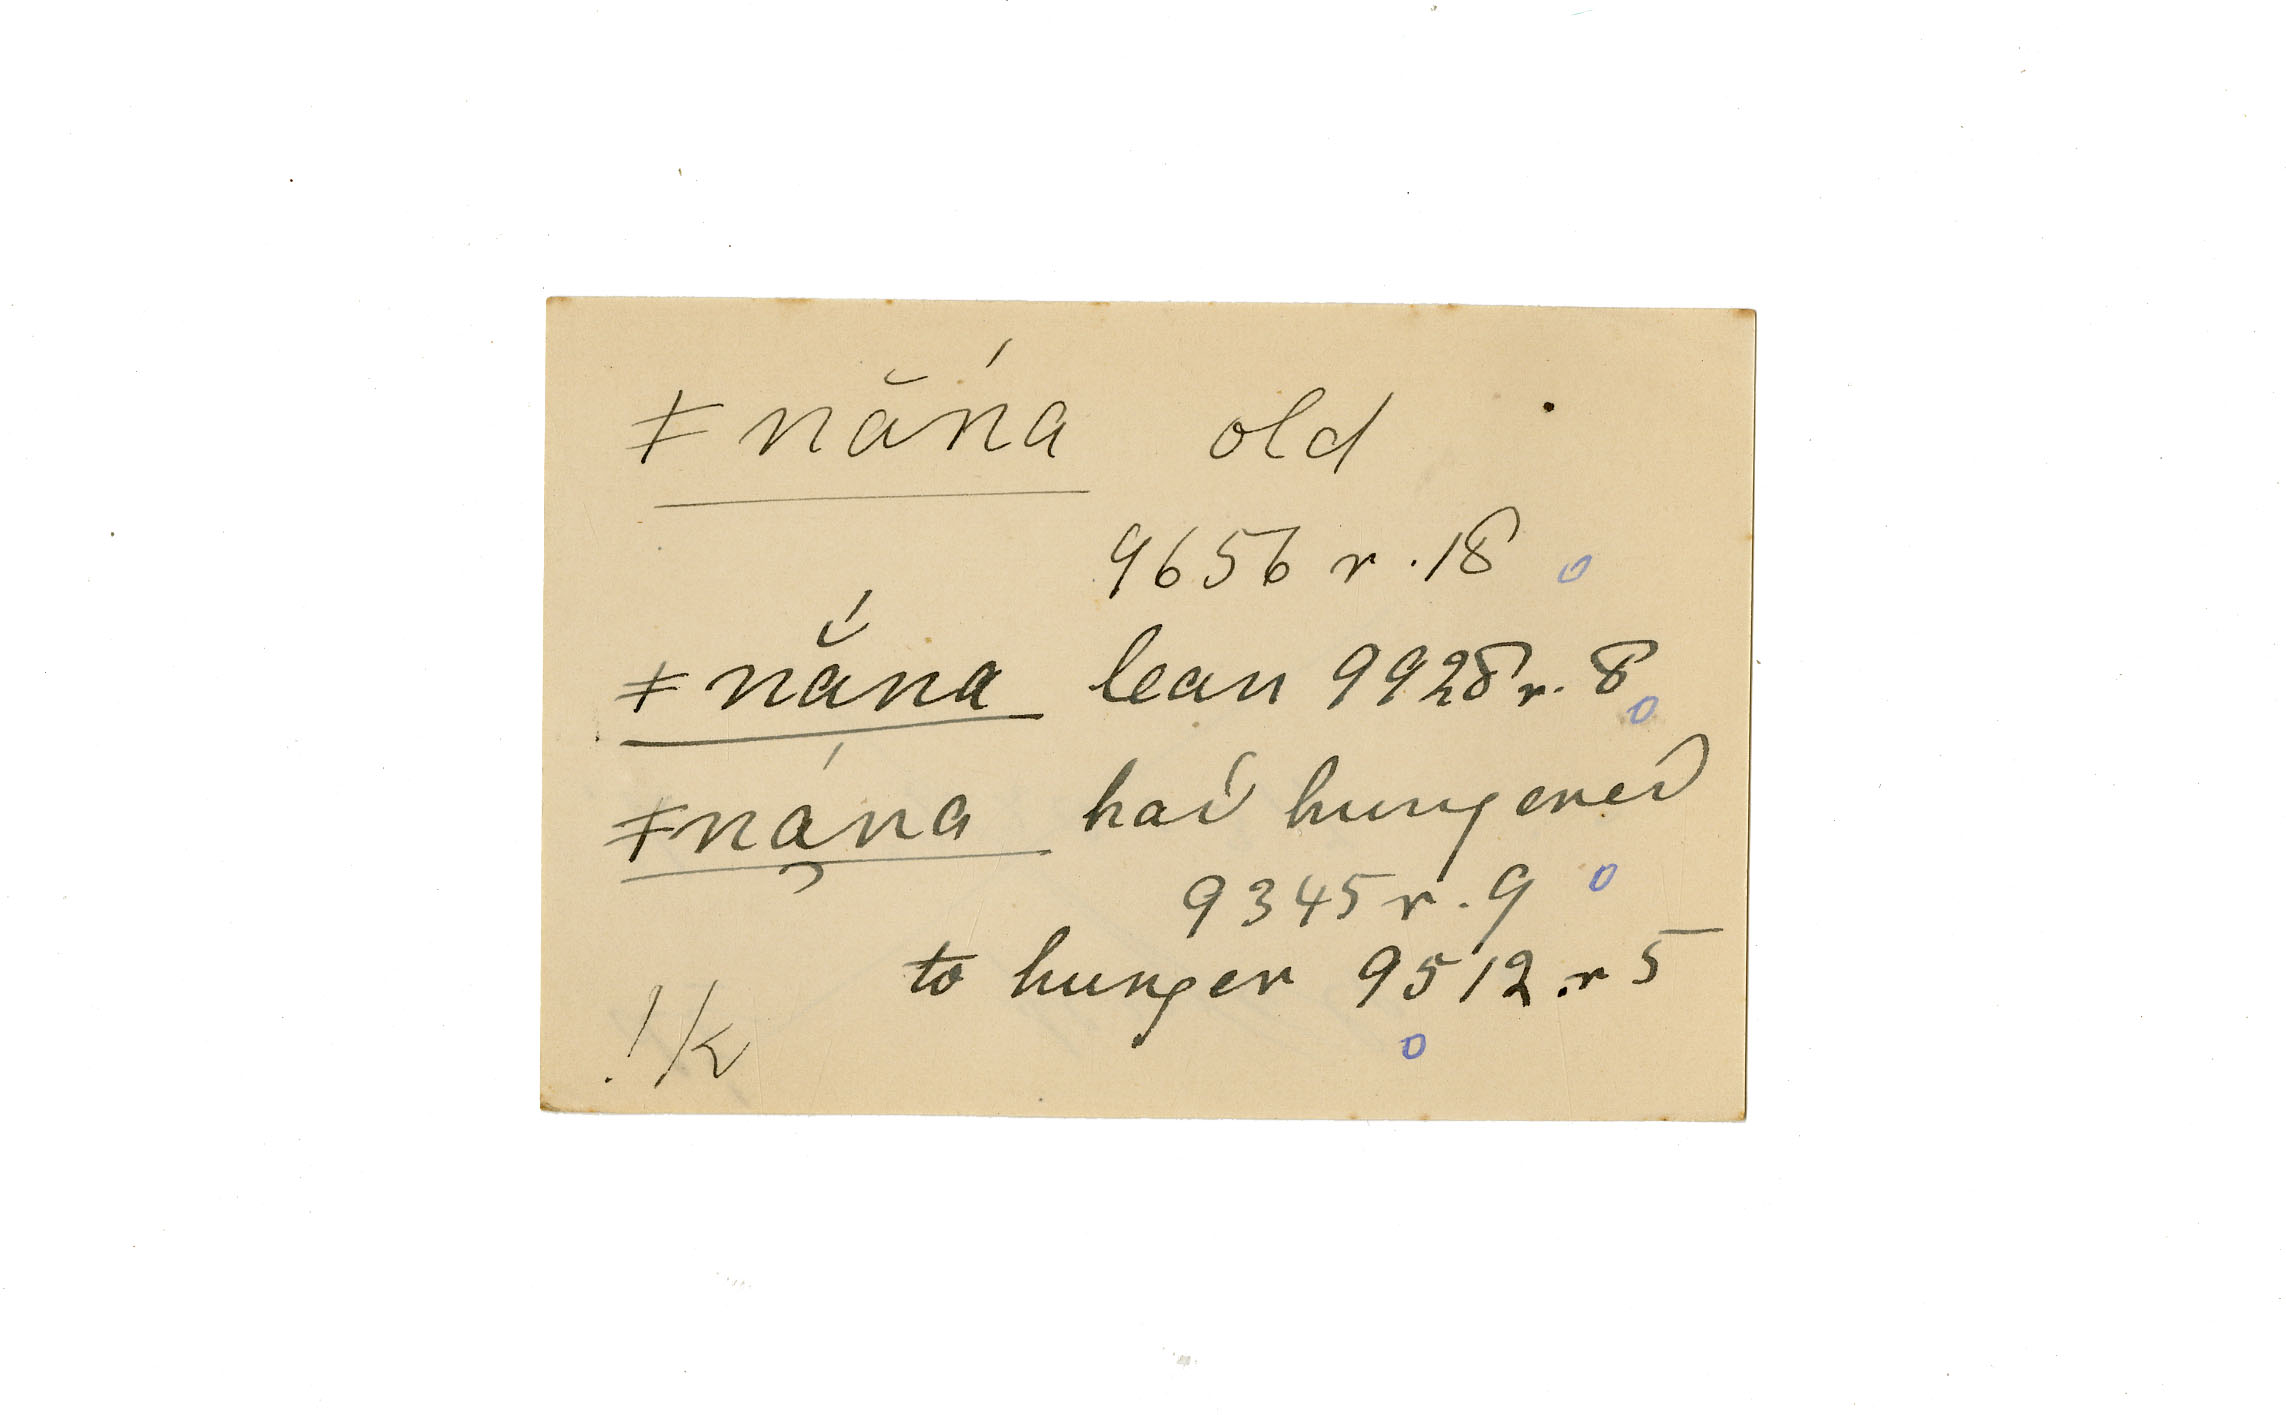 ǂnăńa old
9656 r. 18 o
ǂnắna lean 9928 r. 8 o
ǂną́na had hungered
9345 r. 9 o
to hunger 9512. r 5
!k o